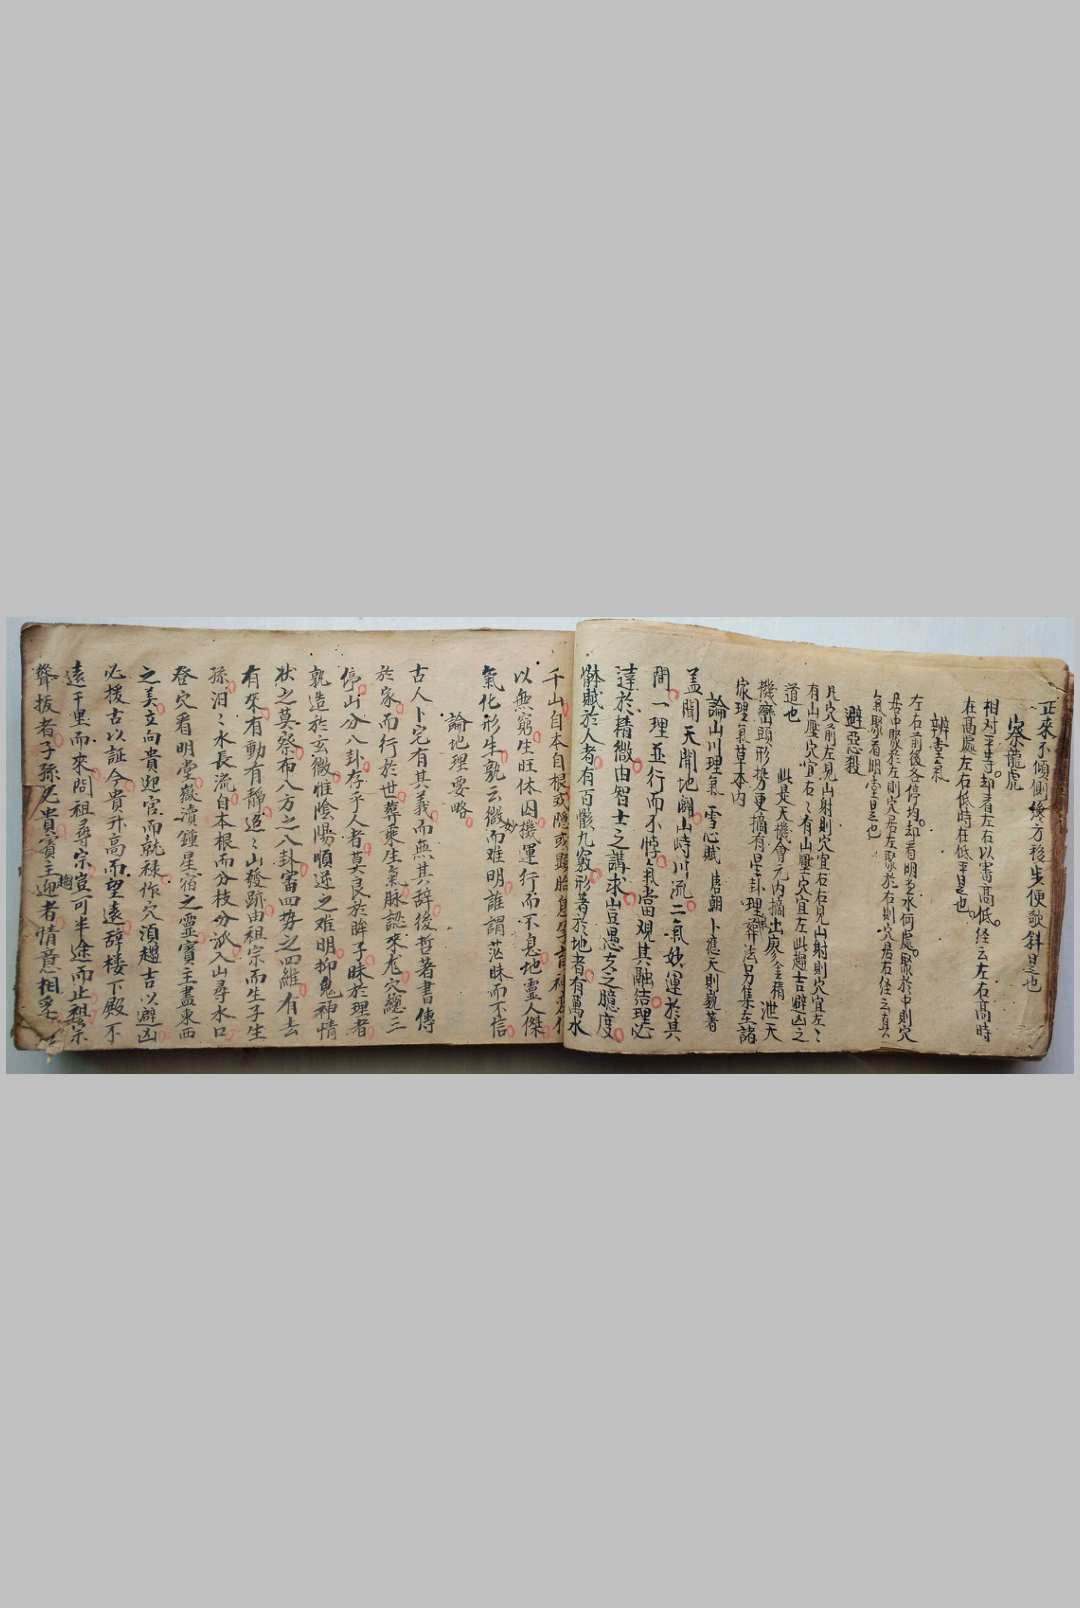 正來不傾側後方移步便欹斜是也
察龍虎
相对平等却看左右以審高低経云左右高時
在高處左右低時在低平是也
辨堂氣
左右前後各停均却看明堂水何處聚於中則穴
居中聚於左則穴居左聚於右則穴居右経云真
氣聚看明堂是也
避惡殺
凡穴前左見山射則穴宜右右見山射則穴宜左〻
有山壓穴宜右〻有山壓穴宜左此趨吉避凶之
道也
此是天機會元内摘出廖金精 泄天
機巒頭形势更摘有星卦理葬法另集在諸
家理氣草本内
論山川理氣 雪心賦 唐朝卜應天則巍著
盖聞天開地闢山峙川流二氣妙運於其
間一理並行而不悖氣當观其融结理必
達於精微由智士之講求豈愚夫之臆度
骵賦於人者有百骸九竅形著於地者有萬水
千山自本自根或隱或顯胎息孕育神変化
以無窮生旺休囚機運行而不息地靈人傑
氣化形生孰云微妙而难明誰謂茫昧而不信
論地理要略
古人卜宅有其義而無其辞後哲著書傳
於家而行於世葬乘生氣脉認來龙穴總三
停山分八卦存乎人者莫良於眸子昧於理者
孰造於玄微惟陰陽順逆之难明抑鬼神情
状之莫察布八方之八卦審四势之四維有去
有來有動有靜迢〻山發跡由祖宗而生子生
孫汩〻水長流自本根而分枝分派入山尋水口
登穴看明堂嶽瀆鍾星宿之靈賓主盡東西
之美立向貴迎官而就禄作穴須趨吉以避凶
必援古以証今貴升高而望遠辞楼下殿不
遠千里而來問祖尋宗豈可半途而止祖宗
聳拔者子孫必貴賓主趨迎者情意相孚